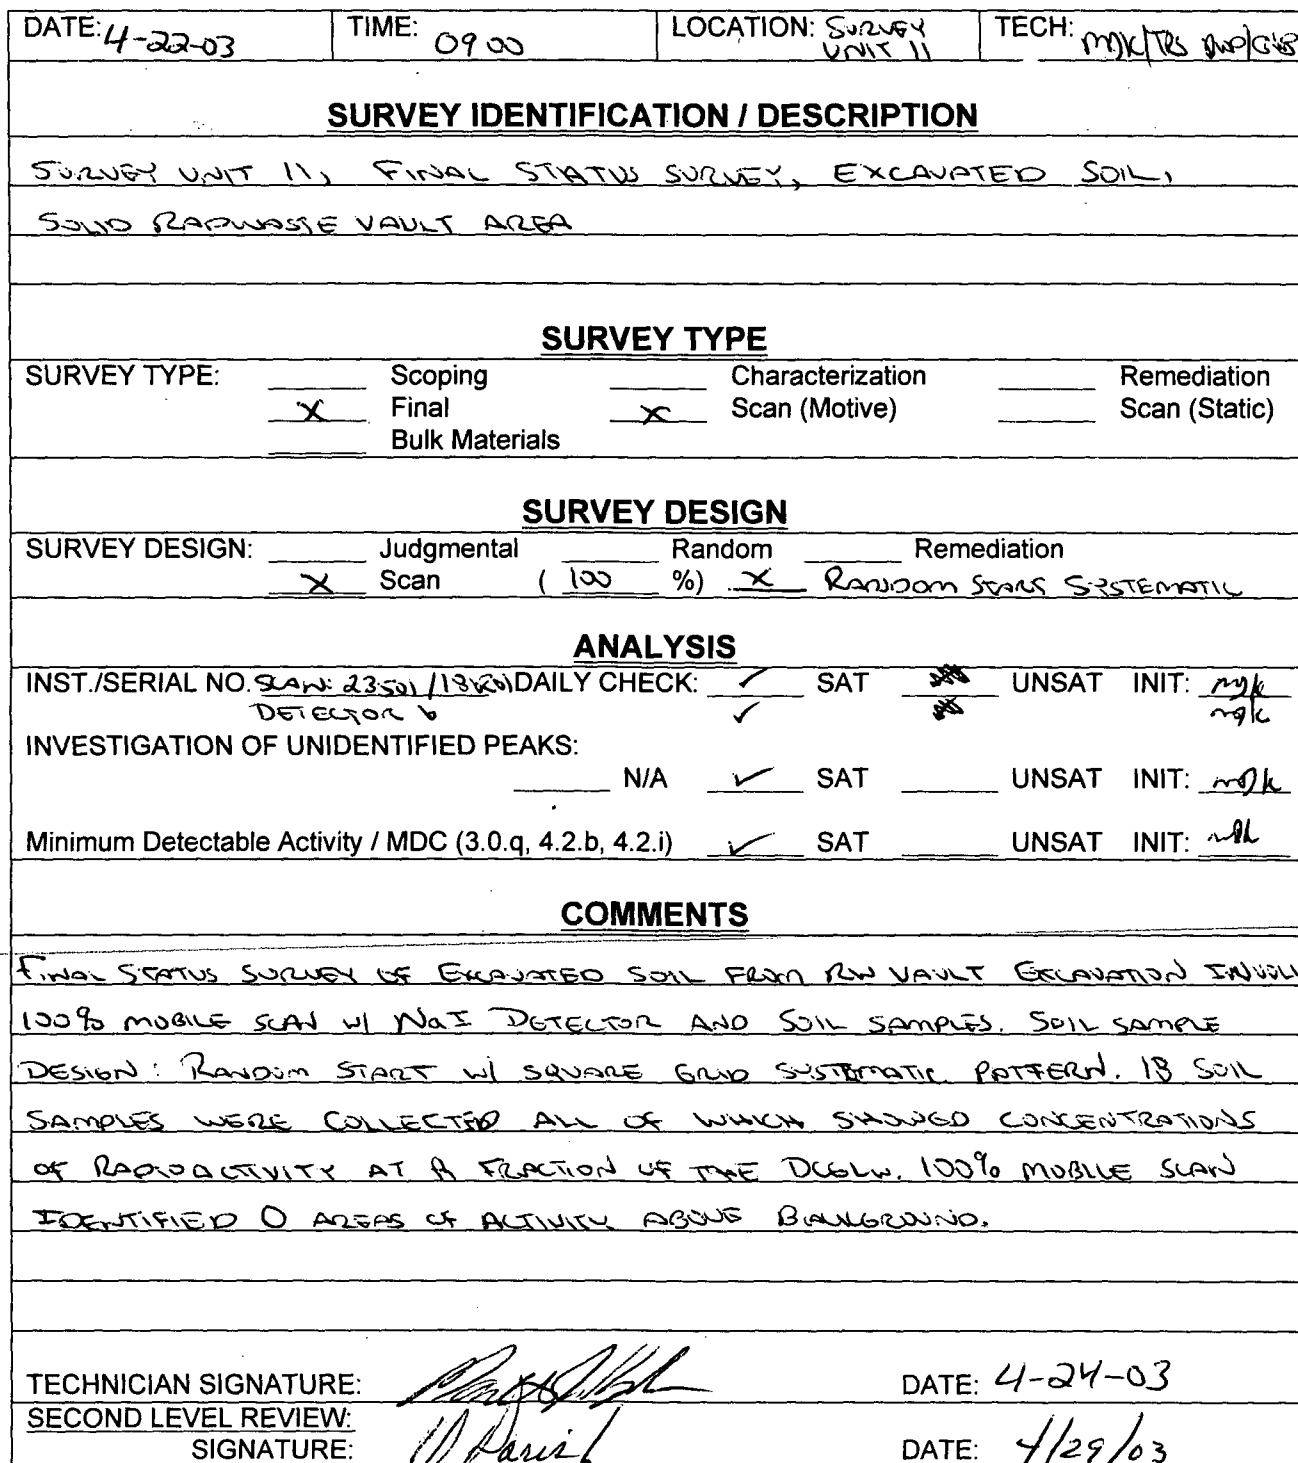 DATE: 4-22-03 TIME: 0900 LOCATION: SURVEY UNIT 11 TECH: MJK/TRS
SURVEY IDENTIFICATION / DESCRIPTION
SURVEY UNIT 11, FINAL STATUS SURVEY, EXCAVATED SOIL,
SOLID RADWASTE VAULT AREA
SURVEY TYPE
SURVEY TYPE: Scoping Characterization Remediation
X Final X Scan (Motive) Scan (Static)
Bulk Materials
SURVEY DESIGN
SURVEY DESIGN: Judgmental Random Remediation
X Scan ( 100 %) X RANDOM START SYSTEMATIC
ANALYSIS
INST./SERIAL NO. SCAN: 23501 / DAILY CHECK: ✓ SAT UNSAT INIT: mjk
DETECTOR 6 ✓ mjk
INVESTIGATION OF UNIDENTIFIED PEAKS:
N/A ✓ SAT UNSAT INIT: mjk
Minimum Detectable Activity / MDC (3.0.q, 4.2.b, 4.2.i) ✓ SAT UNSAT INIT: mjk
COMMENTS
FINAL STATUS SURVEY OF EXCAVATED SOIL FROM RW VAULT EXCAVATION INVOLV
100% MOBILE SCAN W/ NaI DETECTOR AND SOIL SAMPLES. SOIL SAMPLE
DESIGN: RANDOM START W/ SQUARE GRID SYSTEMATIC PATTERN. 18 SOIL
SAMPLES WERE COLLECTED ALL OF WHICH SHOWED CONCENTRATIONS
OF RADIOACTIVITY AT A FRACTION OF THE DCGLW. 100% MOBILE SCAN
IDENTIFIED 0 AREAS OF ACTIVITY ABOVE BACKGROUND.
TECHNICIAN SIGNATURE: DATE: 4-24-03
SECOND LEVEL REVIEW:
SIGNATURE: DATE: 4/29/03